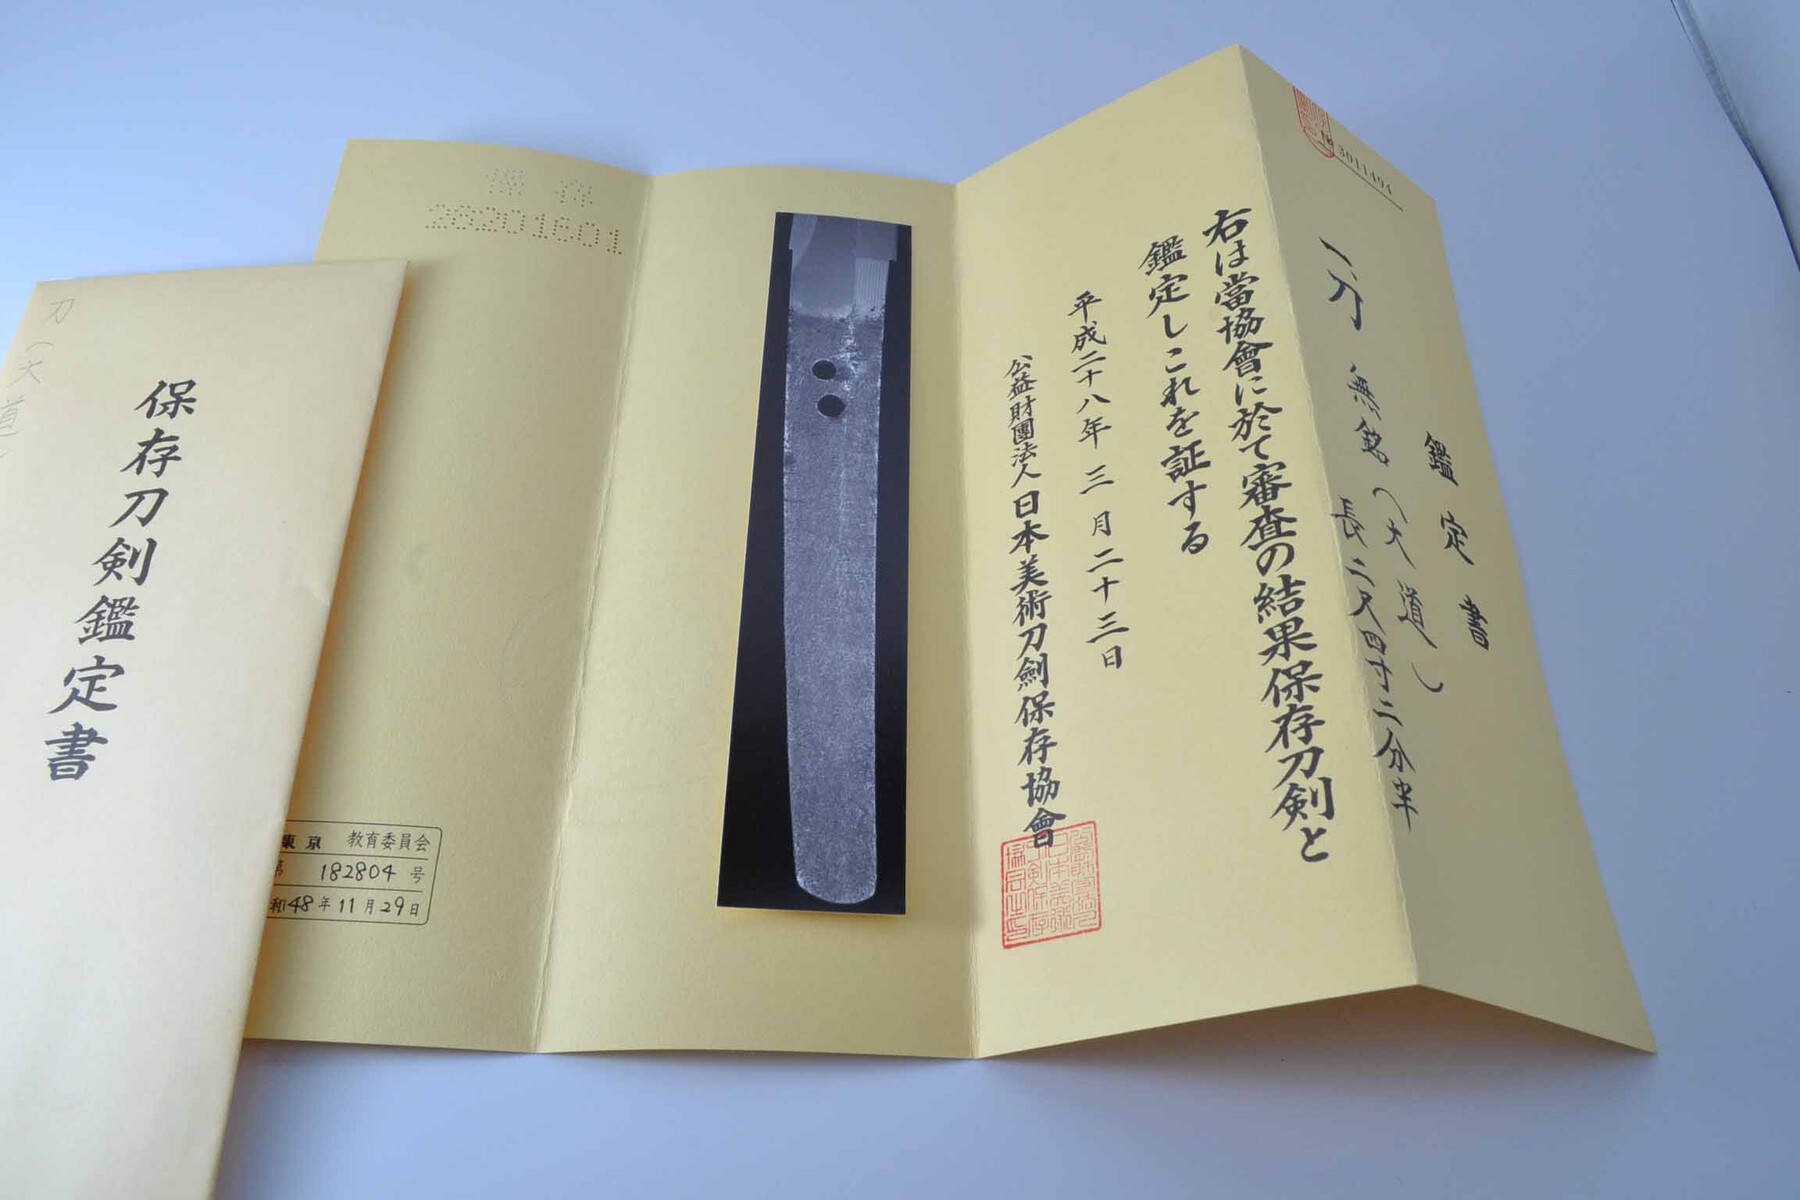 3011494
鑑定書
一、刀 無銘(大道)
長二尺四寸二分半
右は當協會に於て審査の結果保存刀剣と
鑑定しこれを証する
平成二十八年三月二十三日
公益財團法人日本美術刀劍保存協會
保存
28201601
東京 教育委員会
第 182804 号
和48年11月29日
刀(大道)
保存刀剣鑑定書